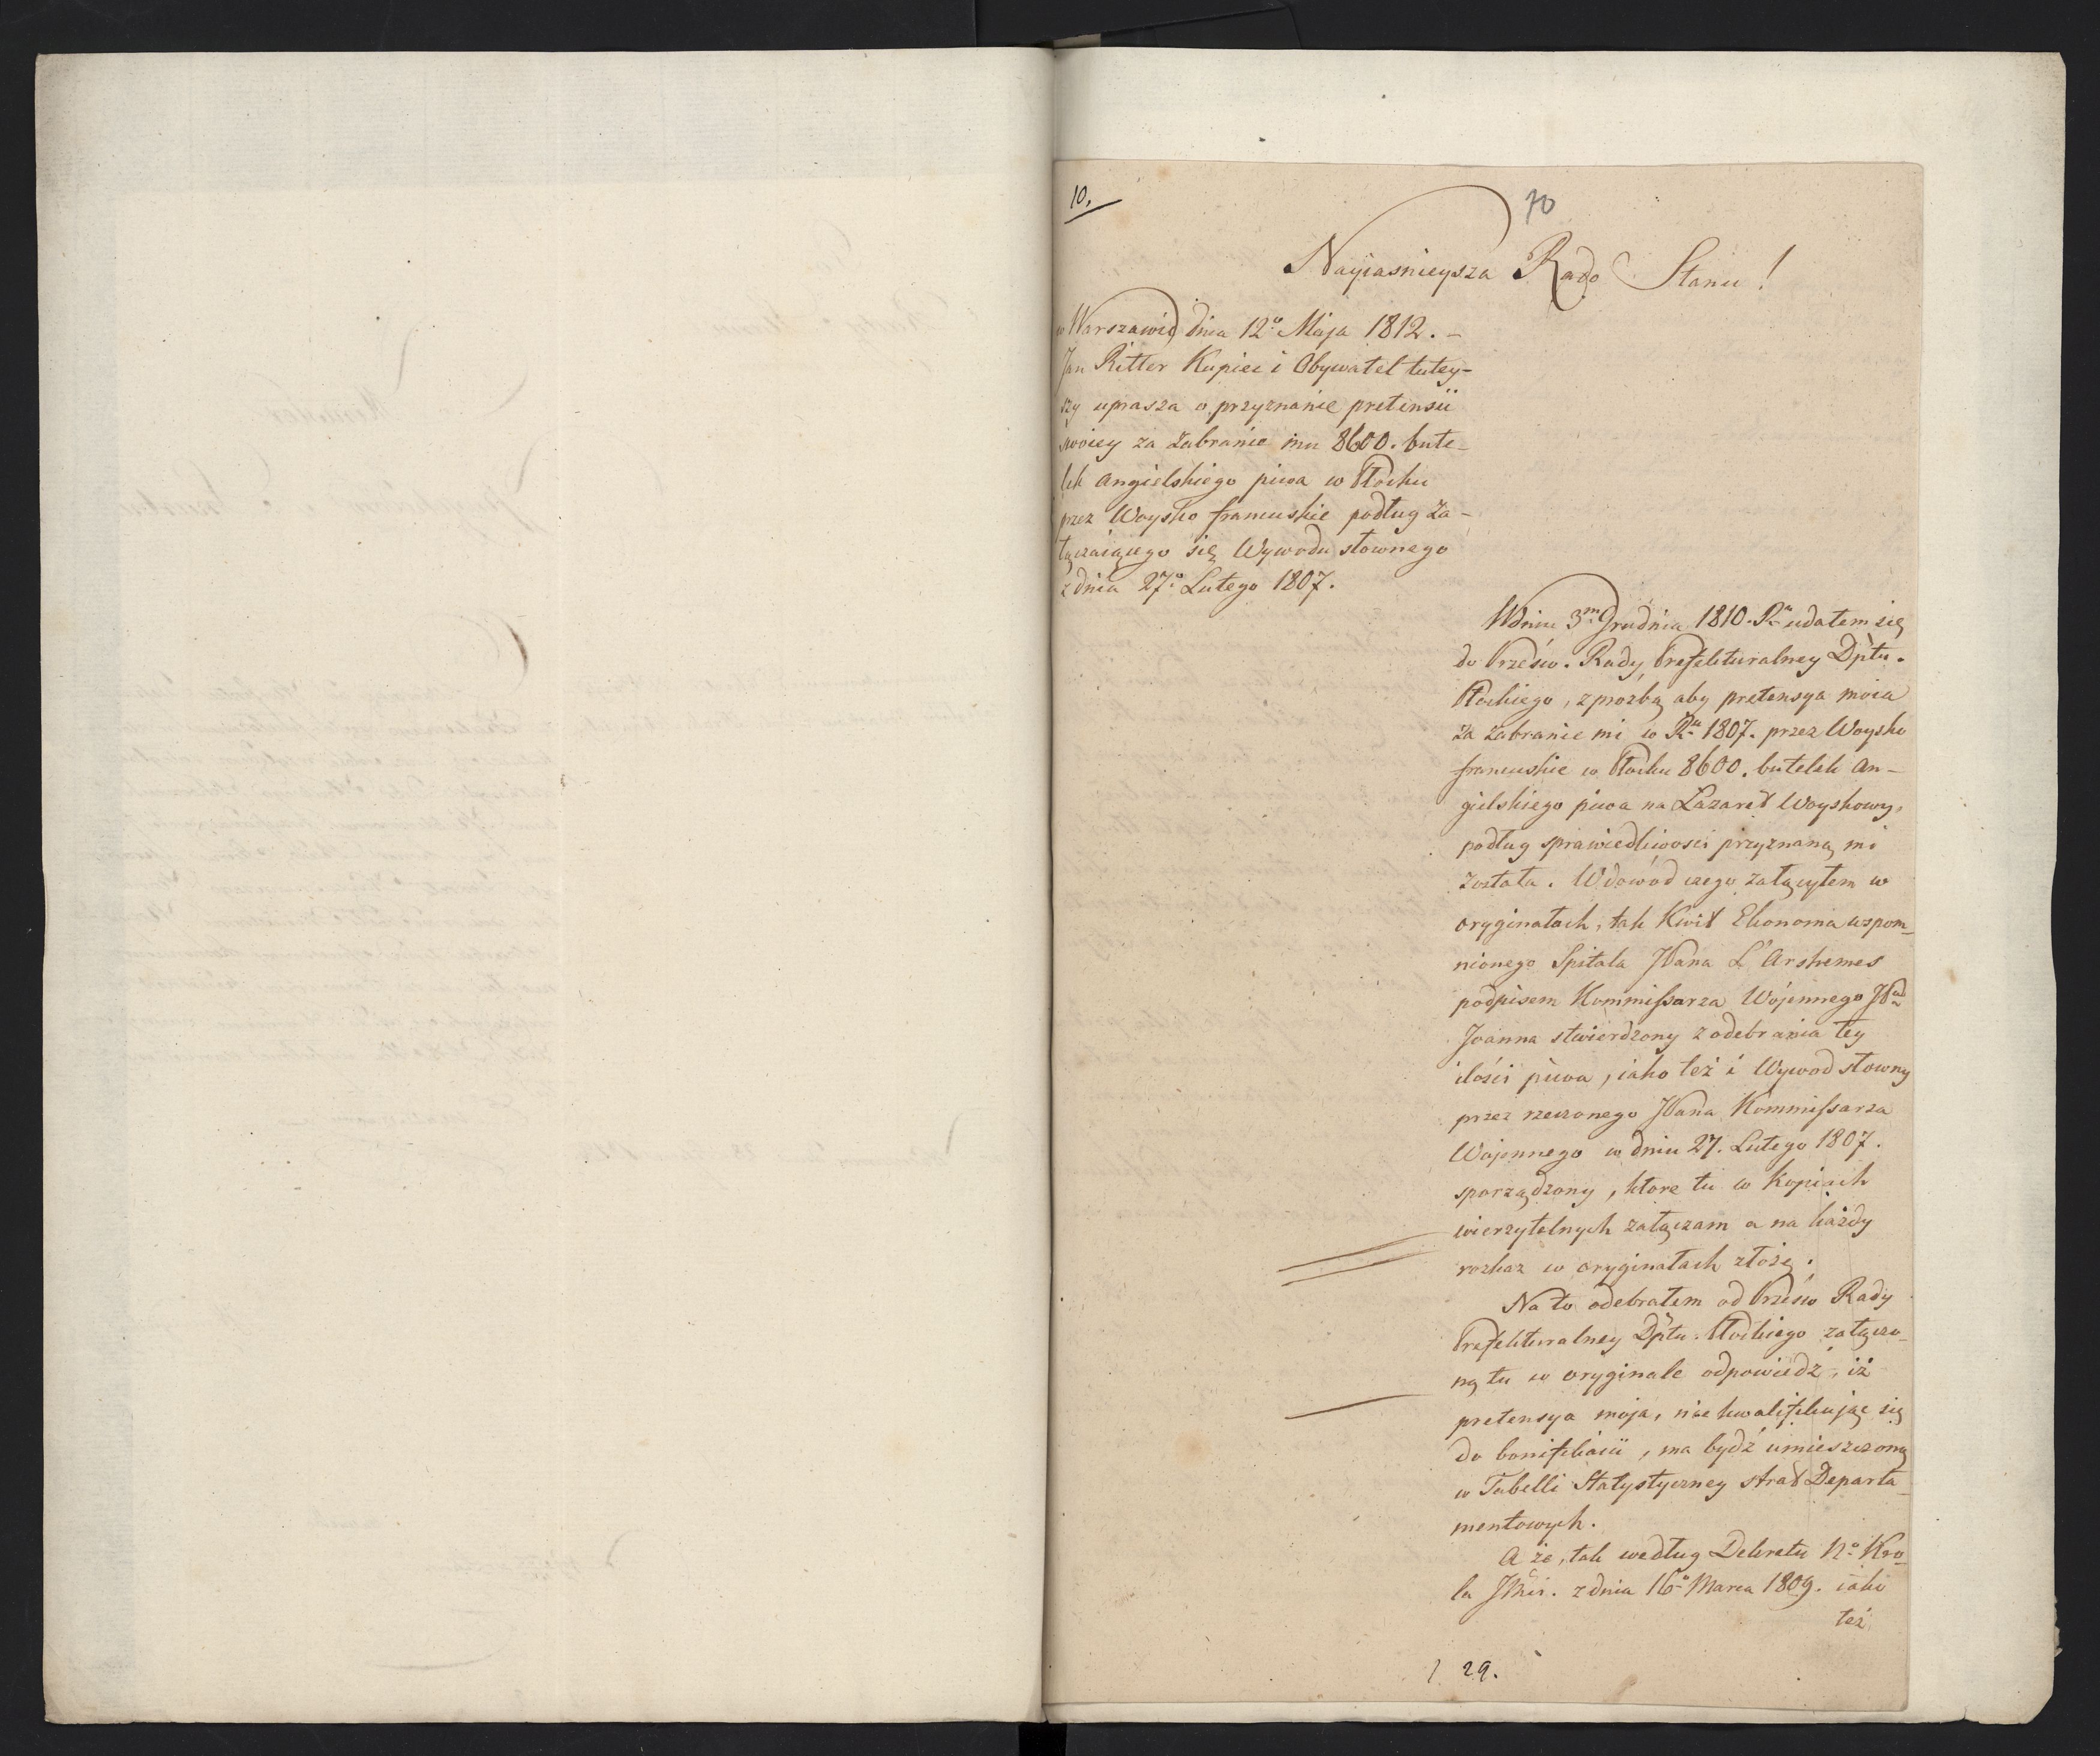 10.
70
Nayiasnieysza Rado Stanu!
w Warszawie dnia 12º Maja 1812. –
Jan Ritter Kupiec i Obywatel tutey-
szy uprasza o przyznanie pretensii
swoiey za zabranie mu 8600. bute-
lek angielskiego piwa w Płocku
przez Woysko francuskie podług za-
łączaiącego się Wywodu słownego
z dnia 27º Lutego 1807.
W dniu 3m Grudnia 1810. Ru udałem się
do Prześw. Rady Prefekturalney Dptu.
Płockiego, z prozbą aby pretensya moia
za zabranie mi w Ru 1807. przez Woysko
francuskie w Płocku 8600. butelek an-
gielskiego piwa na Lazaret Woyskowy,
podług sprawiedliwosci przyznaną mi
została. W dowód czego załączyłem w
oryginałach, tak Kwit Ekonoma wspom-
nionego Spitala JPana L'Arshemes
podpisem Kommissarza Wojennego JPa
Joanna stwierdzony z odebrania tey
ilości piwa, iako też i Wywod słowny
przez rzeczonego JPana Kommissarza
Wojennego w dniu 27. Lutego 1807.
sporządzony, ktore tu w Kopiach
wierzytelnych załączam a na każdy
rozkaz w oryginałach złożę.
Na to odebrałem od Prześw Rady
Prefekturalney Dptu. Płockiego załączo-
ną tu w oryginale odpowiedź, iż
pretensya moja, nie kwalifikując się
do bonifikacii, ma bydź umieszczoną
w Tabelli Statystyczney strat Departa-
mentowych.
A że, tak według Dekretu No Kro-
la Jmci. z dnia 16º Marca 1809. iako
też
29.